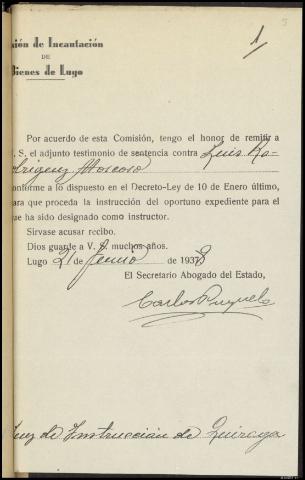 5
1
sión de Incautación
DE
Bienes de Lugo
Por acuerdo de esta Comisión, tengo el honor de remitir a
. S. el adjunto testimonio de sentencia contra Luis Ro-
driguez Moscoso
onforme a lo dispuesto en el Decreto-Ley de 10 de Enero último,
ara que proceda la instrucción del oportuno expediente para el
ue ha sido designado como instructor.
Sirvase acusar recibo.
Dios guarde a V. S. muchos años.
Lugo 21 de Junio de 1938
El Secretario Abogado del Estado,
Carlos
Juez de Instrucción de Quiroga